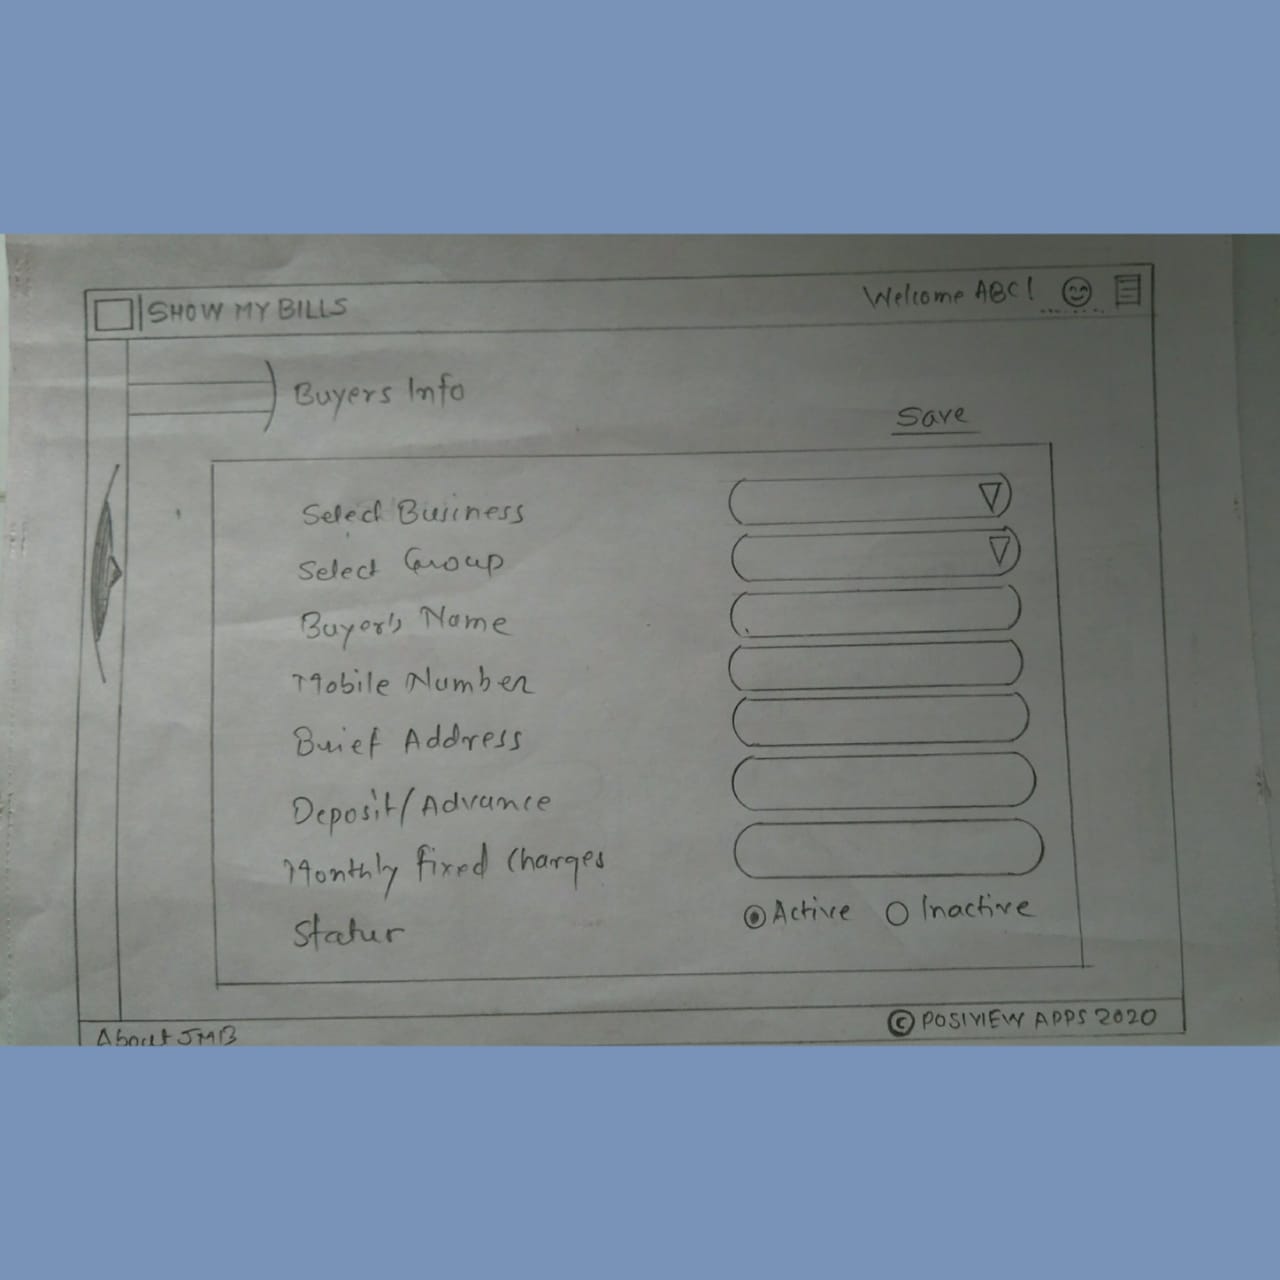 SHOW MY BILLS
Welcome ABC!
Buyers Info
Save
Select Business
Select Group
Buyer's Name
Mobile Number
Brief Address
Deposit/Advance
Monthly fixed charges
Status
Active Inactive
About SMB
© POSIVIEW APPS 2020